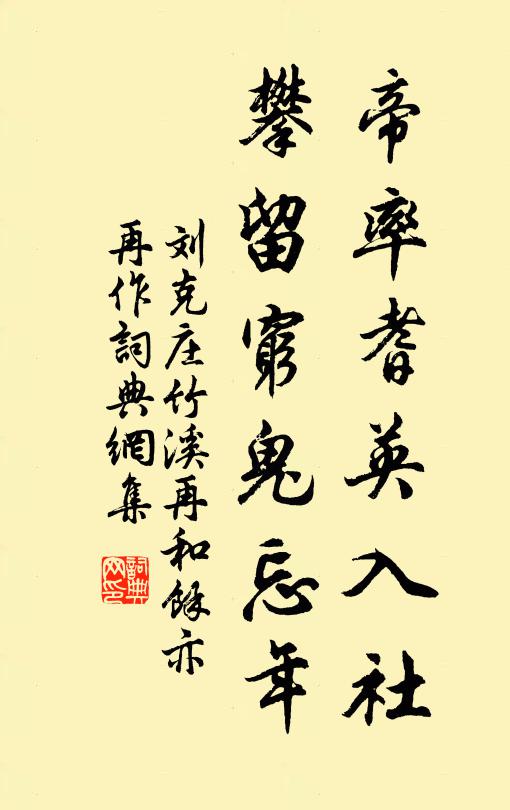 帝率耆英入社
攀留窮鬼忘年
刘克庄竹溪再和餘亦
再作詞典網集
詞典网印